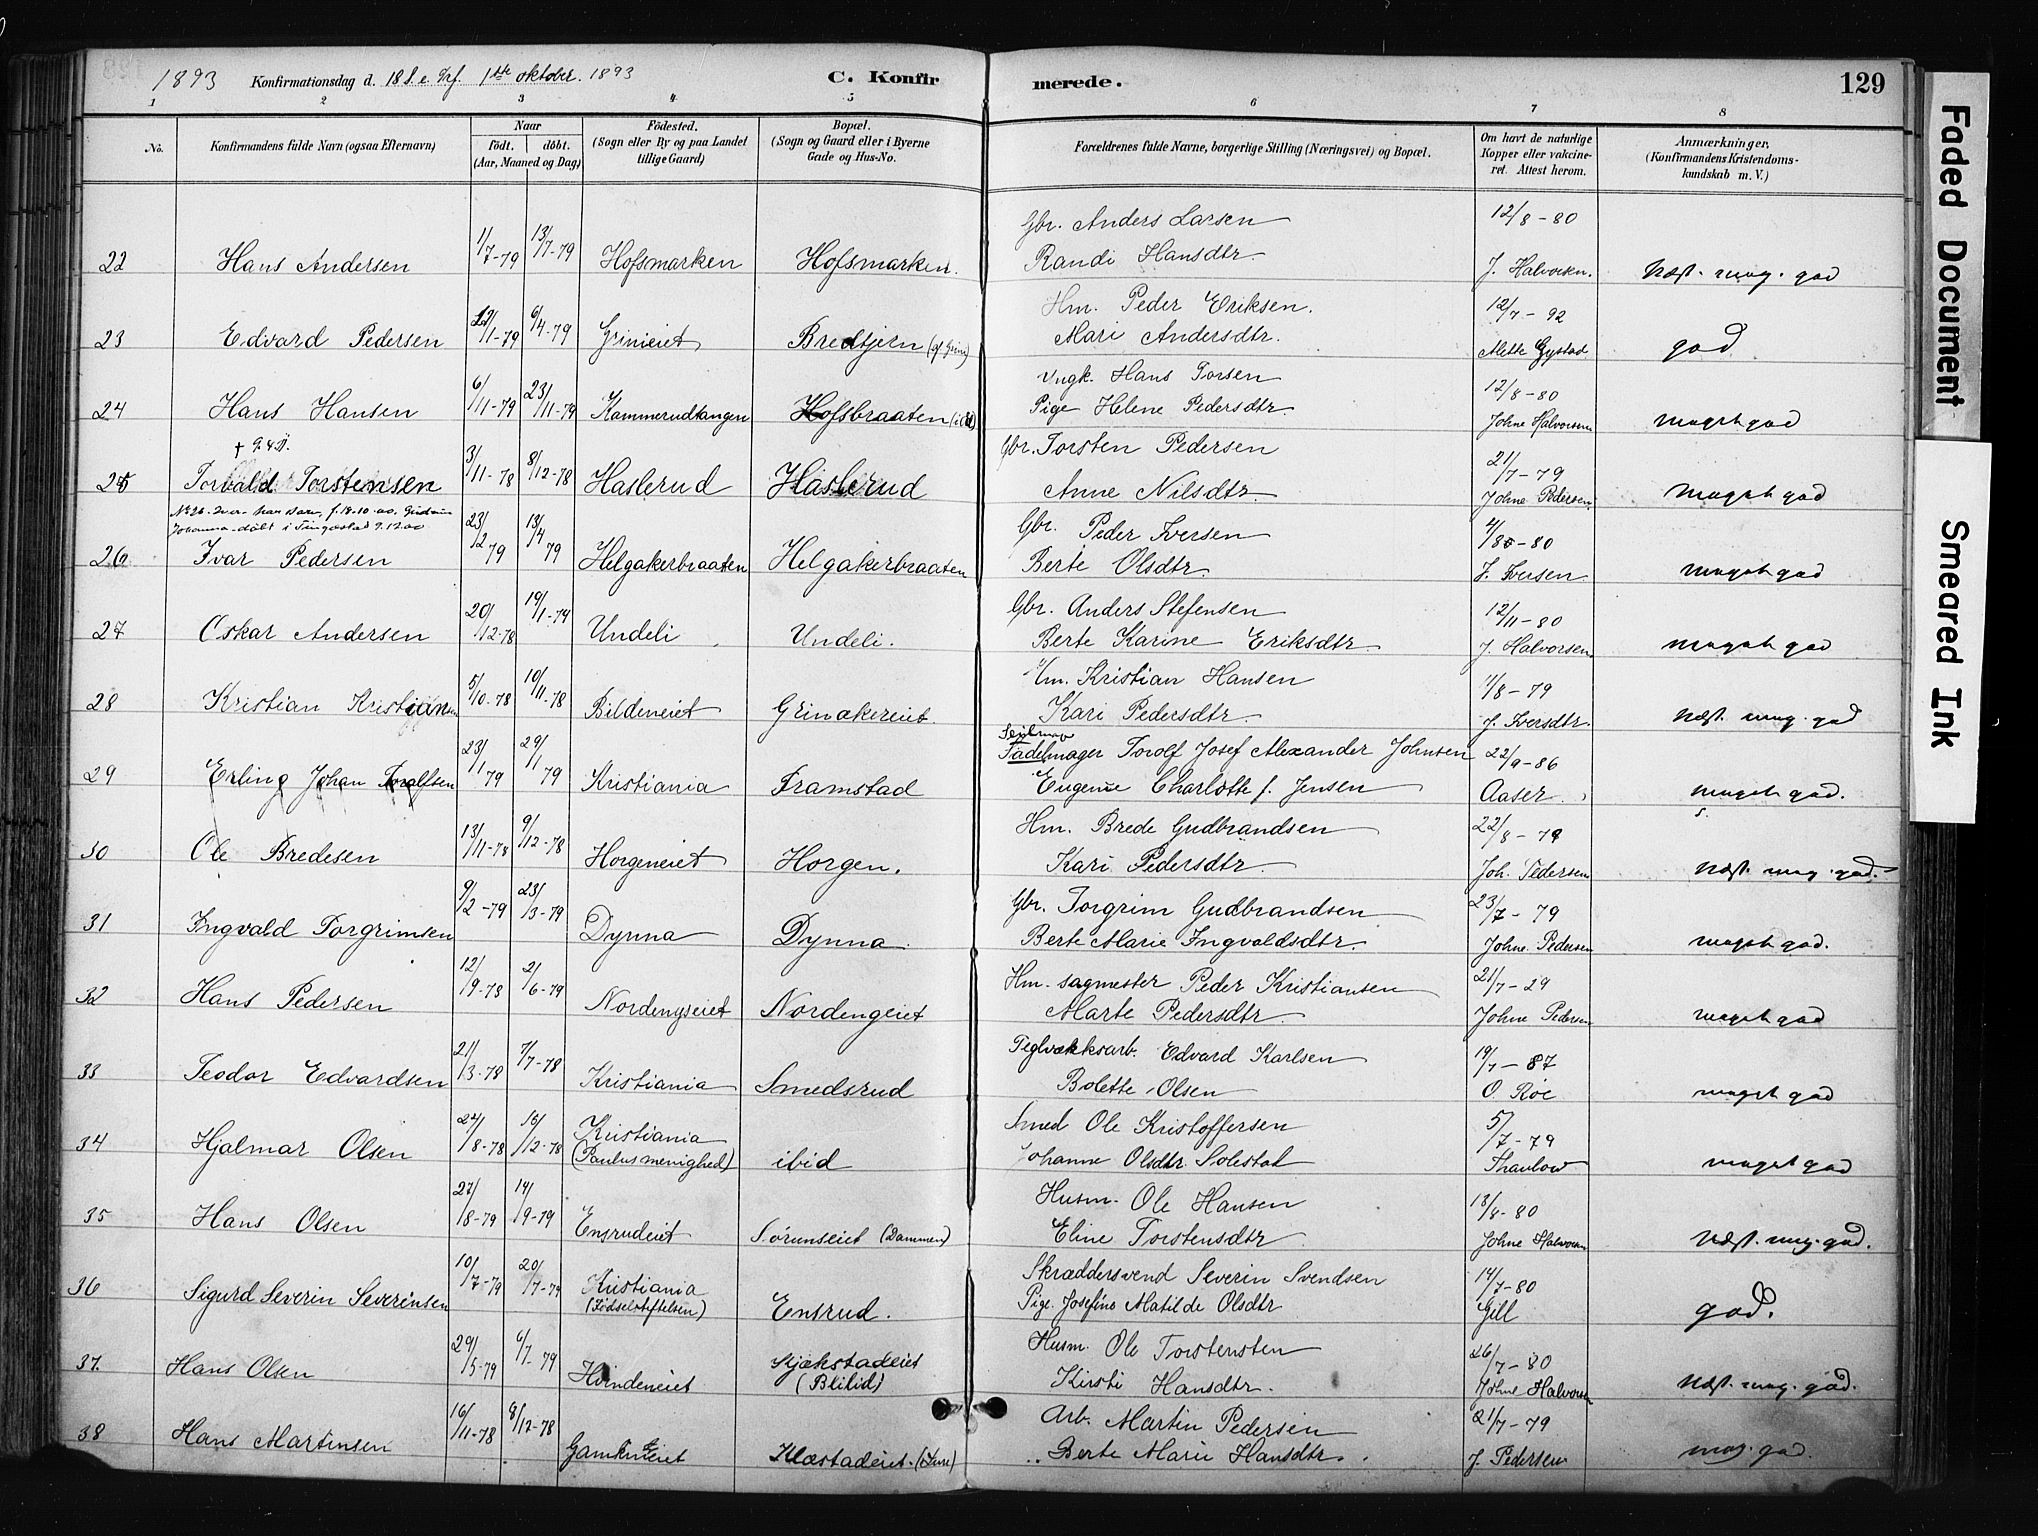 1893 Konfirmationsdag d. 18 S. e. Trf. 1ste oktober. 1893 C. Konfirmerede. 129
1 2 3 4 5 6 7 8
No. Konfirmandens fulde Navn (ogsaa Efternavn) Naar født. døbt. (Aar, Maaned og Dag) Fødested. (Sogn eller By og paa Landet tillige Gaard) Bopæl. (Sogn og Gaard eller i Byerne Gade og Hus-No. Forældrenes fulde Navne, borgerlige Stilling (Næringsvei) og Bopæl. Om havt de naturlige Kopper eller vaccineret. Attest herom. Anmærkninger, (Konfirmandens Kristendomskundskab m. V.)
Gbr. Anders Larsen 12/8-80
22 Hans Andersen 1/7-79 13/7-79 Hofsmarken Hofsmarken. Randi Hansdtr J. Halvorsen. Næst. meg. god
Hm. Peder Eriksen. 12/7-92
23 Edvard Pedersen 12/1-79 6/4-79 Grinieiet Bredtjern (af Grini) Mari Andersdtr. Mette Gystad god
Ungk. Hans Torsen 12/8-80
24 Hans Hansen 6/11-79 23/11-79 Kammerudtangen Hofsbraaten Pige Helene Pedersdtr Johne Halvorsen meget god
Gbr. Torsten Pedersen 21/7-79
25 Torvald Torstensen 3/11-78 8/12-78 Haslerud Haslerud Anne Nilsdtr. Johne Pedersen. meget god
Gbr. Peder Iversen
26 Ivar Pedersen 23/2 79 13/4 79 Helgakerbraaten Helgakerbraaten Berte Olsdtr. J. Iversen meget god
Gbr. Anders Stefensen 12/11-80
27 Oskar Andersen 20/12-78 19/1-79 Undeli Undeli. Berte Karine Eriksdtr J. Halvorsen. meget god
Hm. Kristian Hansen 11/8-79
28 Kristian Kristiansen 5/10-78 10/11-78 Bildeneiet Grinakereiet. Kari Pedersdtr J. Iversdtr. Næst. meg. god
Seilmag
Sadelmager Torolf Josef Alexander Johnsen 22/9-86
29 Erling Johan Toralfsen 23/1 79 29/1 79 Kristiania Framstad Eugenie Charlotte f. Jensen Aaser meget god.
Hm. Brede Gudbrandsen 22/8-79
30 Ole Bredesen 13/11-78 9/12-78 Horgeneiet Horgen. Kari Pedersdtr Joh. Pedersen Næst. meg. god.
Gbr. Torgrim Gudbrandsen 23/7-79
31 Ingvald Torgrimsen 9/2-79 23/3-79 Dynna Dynna. Berte Marie Ingvaldsdtr. Johne Pedersen meget god.
Hm. sagmester Peder Kristiansen 21/7-29
32 Hans Pedersen 12/9-78 2/6-79 Nordengseiet Nordengeiet Marte Pedersdtr. Johne Pedersen meget god
Teglværksarb. Edvard Karlsen 19/7-87
33 Teodor Edvardsen 21/3-78 7/7-78 Kristiania Smedsrud Bolette Olsen O. Roe meget god
Smed Ole Kristoffersen 5/7-79
34 Hjalmar Olsen 24/8-78 15/12-78 Kristiania (Paulus menighed) ibid Johanne Olsdtr. Solestad Thaulow meget god
Husm. Ole Hansen 13/8-80
35 Hans Olsen 27/8-79 14/9-79 Ensrudeiet Sørumseiet (Dammen) Eline Torstensdtr Johne Halvorsen Næst. meg. god.
Skræddersvend Severin Svendsen 14/7-80
36 Sigurd Severin Severinsen 10/7-79 20/7-79 Kristiania (Fødselstiftelsen) Ensrud. Pige. Josefine Matilde Olsdtr Gill god.
Husm. Ole Torstensten 26/7-80
37. Hans Olsen 29/5-79 6/7-79 Hvindeneiet (Blilid) Kirsti Hansdtr. Johne Halvorsen Næst. meg. god.
Arb. Martin Pedersen 21/7-79
38 Hans Martinsen 16/11-78 8/12-78 Gamkineiet Klæstadeiet. Berte Marie Hansdtr. J. Pedersen meg. god.
Faded Document
Smeared Ink